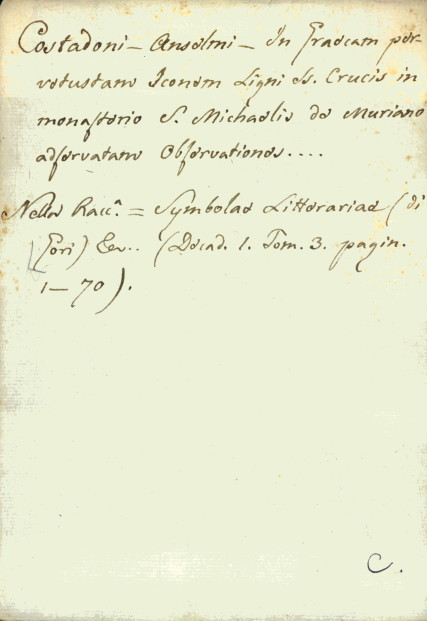 Costadoni - Anselmi - In Graecam per-
vetustam Iconem Ligni SS. Crucis in
monasterio S. Michaelis de Muriano
adservatam Observationes....
Nella Racc.a = Symbolae Litterariae (di
Gori) &c.. (Decad. 1. Tom. 3. pagin.
1-70).
C.